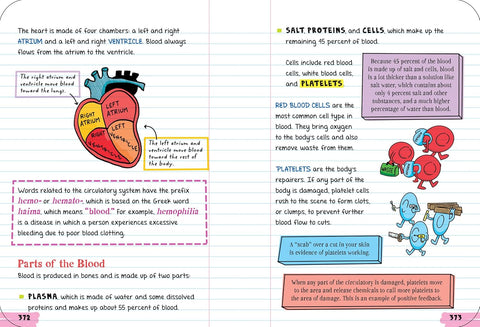 The heart is made of four chambers: a left and right
ATRIUM and a left and right VENTRICLE. Blood always
flows from the atrium to the ventricle.
The right atrium and
ventricle move blood
toward the lungs.
RIGHT
ATRIUM
LEFT
ATRIUM
RIGHT
VENTRICLE
LEFT
VENTRICLE
The left atrium and
ventricle move blood
toward the rest of
the body.
Words related to the circulatory system have the prefix
hemo- or hemato-, which is based on the Greek word
haima, which means "blood." For example, hemophilia
is a disease in which a person experiences excessive
bleeding due to poor blood clotting.
Parts of the Blood
Blood is produced in bones and is made up of two parts:
PLASMA, which is made of water and some dissolved
proteins and makes up about 55 percent of blood.
372
SALT, PROTEINS, and CELLS, which make up the
remaining 45 percent of blood.
Cells include red blood
cells, white blood cells,
and PLATELETS.
Because 45 percent of the blood
is made up of salt and cells, blood
is a lot thicker than a solution like
salt water, which contains about
only 6 percent salt and other
substances, and a much higher
percentage of water than blood.
RED BLOOD CELLS are the
most common cell type in
blood. They bring oxygen
to the body's cells and also
remove waste from them.
WASTE
PLATELETS are the body's
repairers. If any part of the
body is damaged, platelet cells
rush to the scene to form clots,
or clumps, to prevent further
blood flow to cuts.
A "scab" over a cut in your skin
is evidence of platelets working.
When any part of the circulatory is damaged, platelets move
to the area and release chemicals to call more platelets to
the area of damage. This is an example of positive feedback.
373